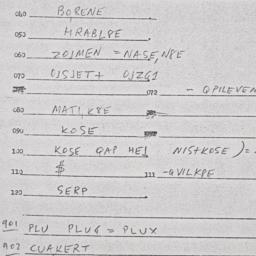 040 BORENE
050 HRABLPE
060 ZOJMEN = NASE, NPE
070 OJSJET + OJZGJ
072 - QPILEVEN
080 MATI, KPE
090 KOSE
100 KOSE QAP HEJ NISTKOSE ) =
110 $ 111 - GVILKPE
120 SERP
901 PLU PLUG = PLUX
902 CUAKERT